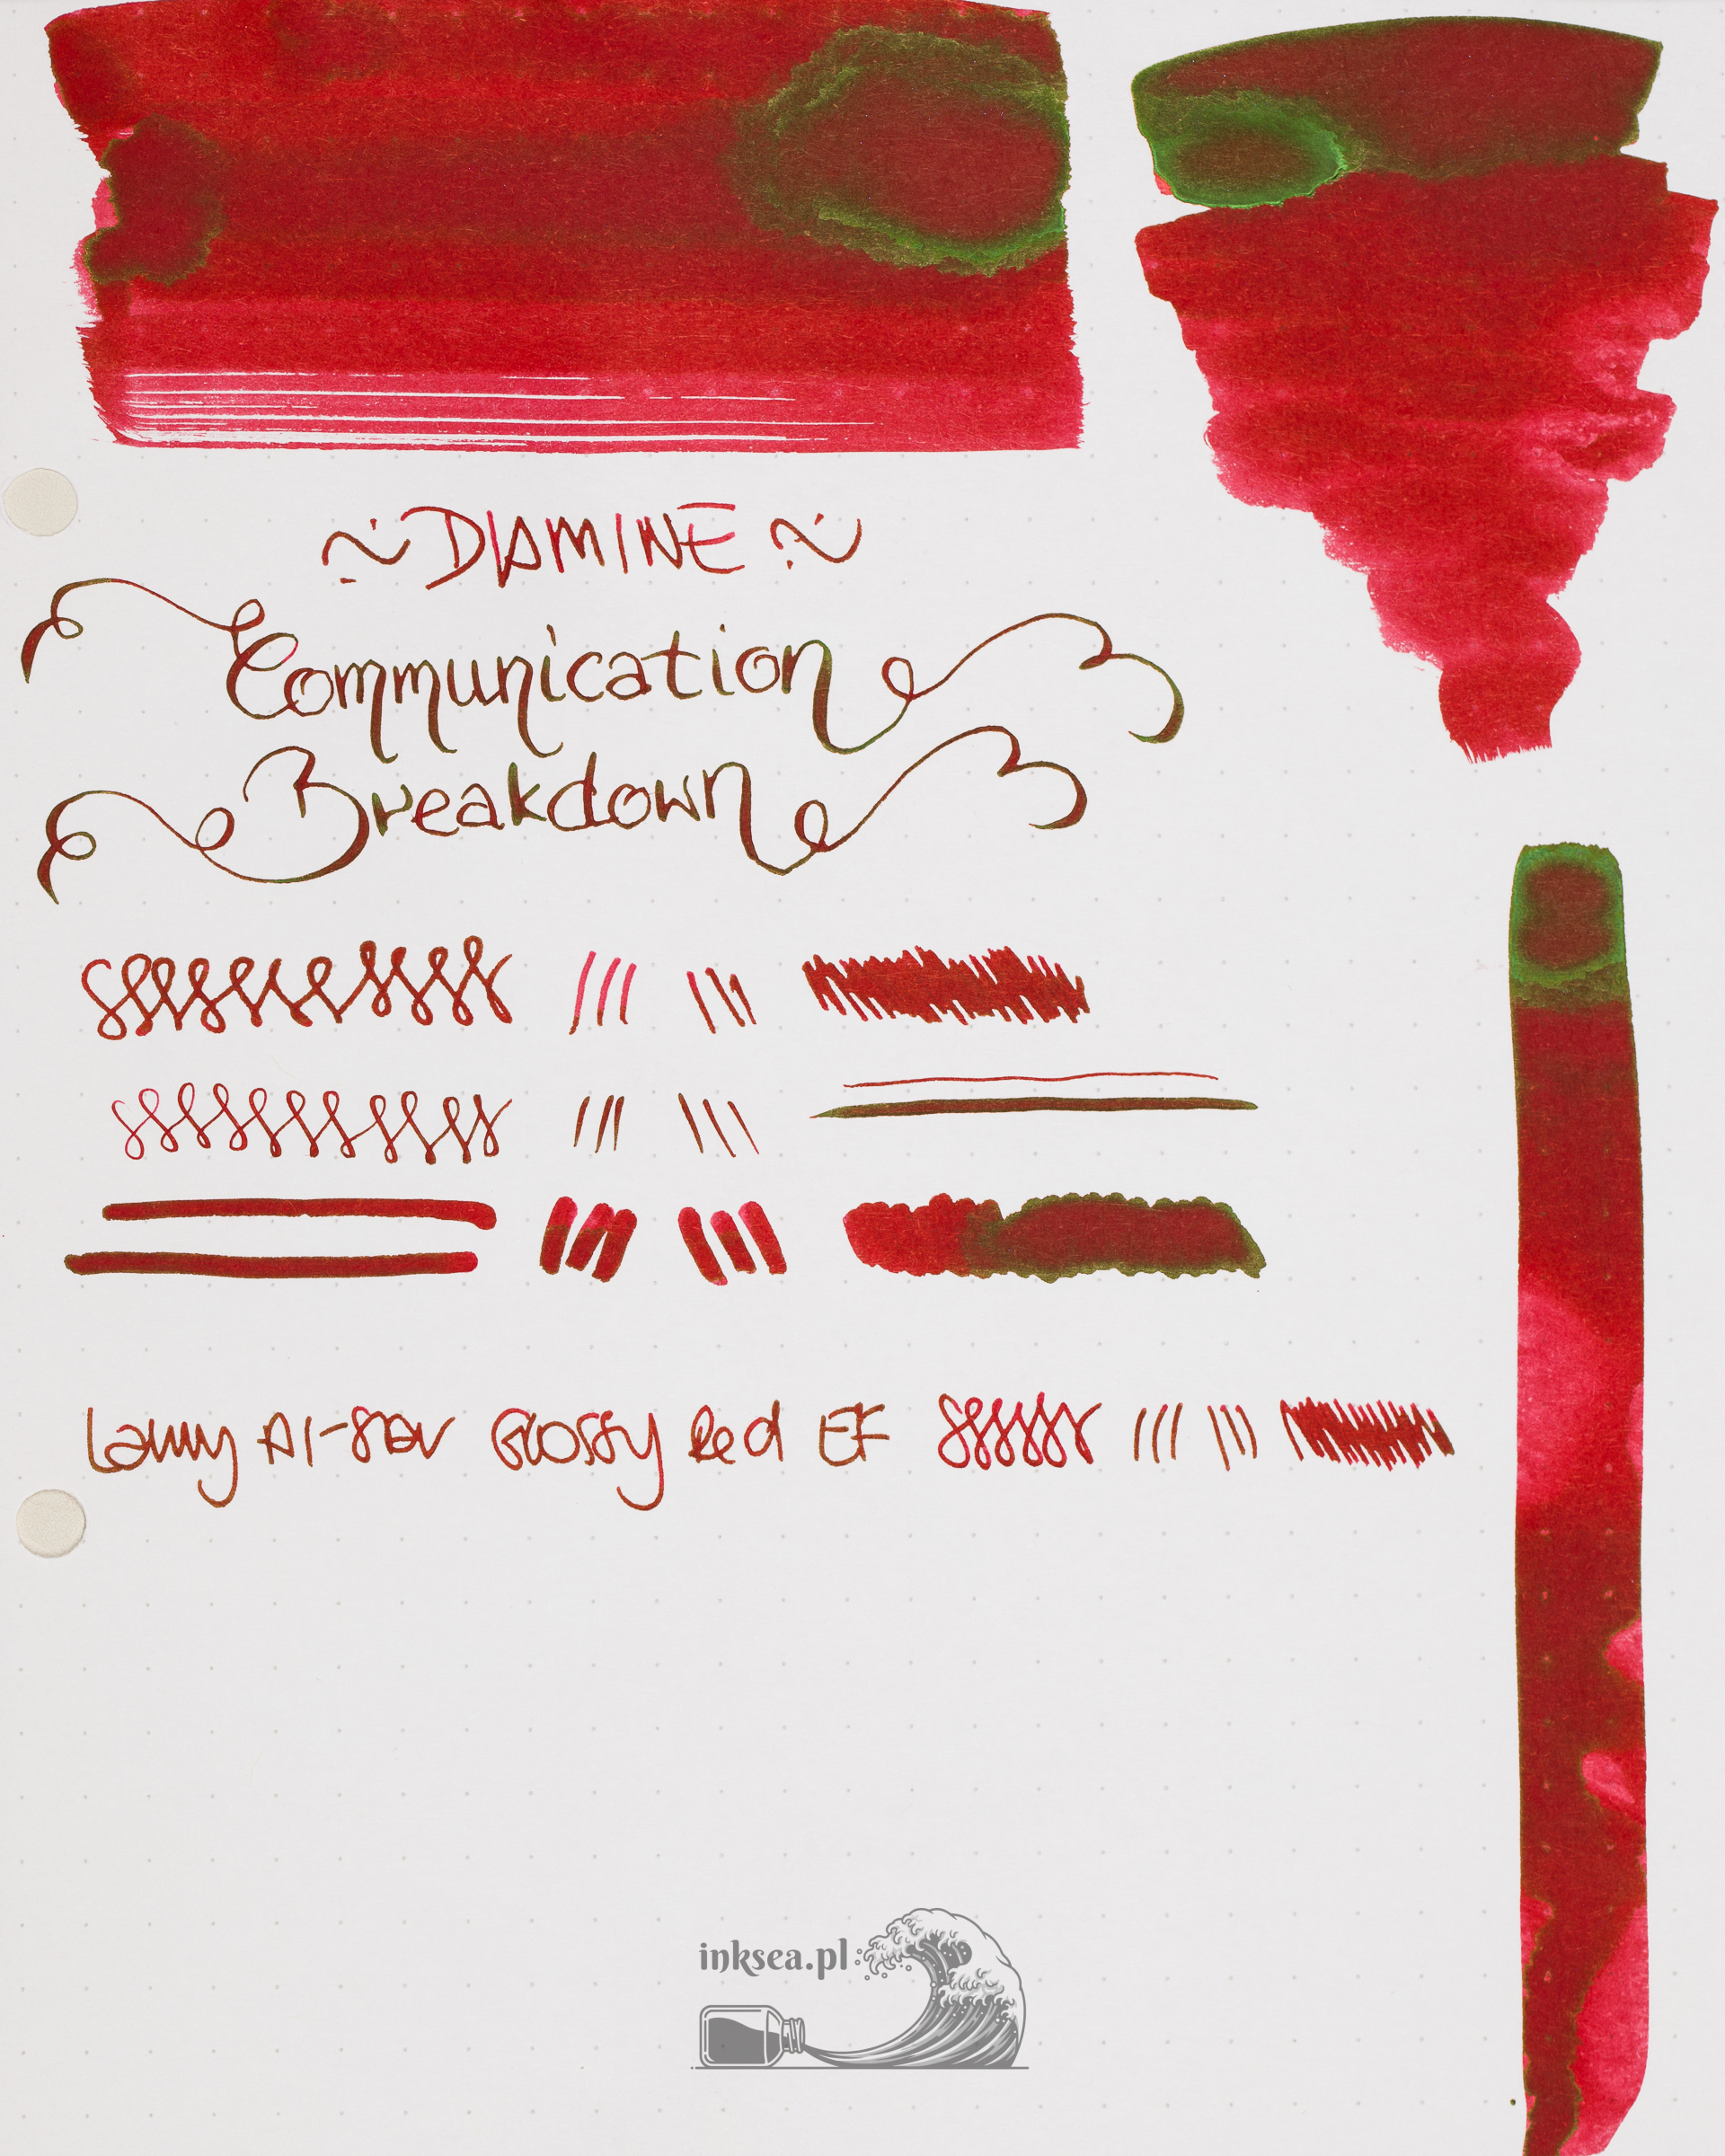 ~ DIAMINE ~
Communication
Breakdown
Lamy Al-Star Glossy Red EF
inksea.pl